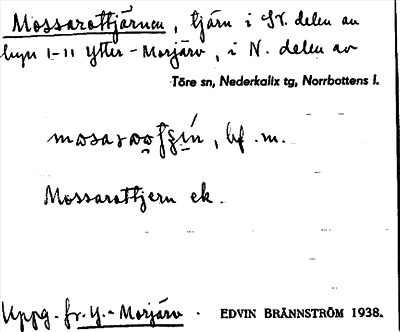 Mossarottjärnen, tjärn i Sv. delen av
byn 1-11 Ytter-Morjärv, i N. delen av
Töre sn, Nederkalix tg, Norrbottens l.
, bf. m.
Mossarottjern ek.
Uppg. fr. Y.-Morjärv. EDVIN BRÄNNSTRÖM 1938.